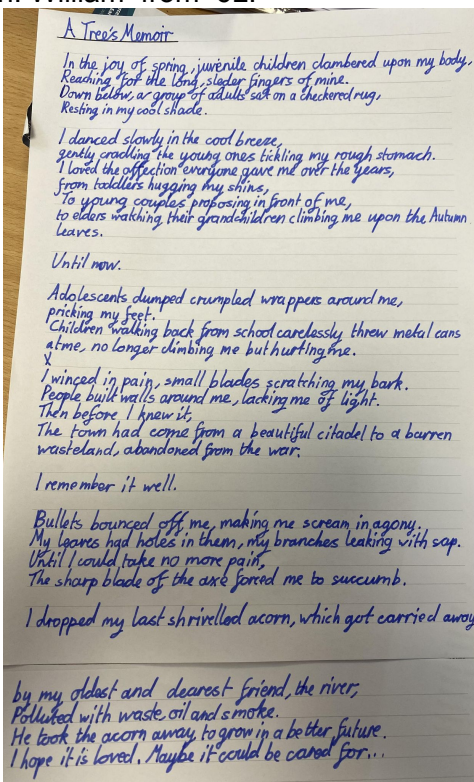 A Tree's Memoir
In the joy of spring, juvenile children clambered upon my body,
Reaching for the long, sleder fingers of mine.
Down below, a group of adults sat on a checkered rug,
Resting in my cool shade.
I danced slowly in the cool breeze,
gently cradling the young ones tickling my rough stomach.
I loved the affection everyone gave me over the years,
from toddlers hugging my shins,
To young couples proposing in front of me,
to elders watching their grandchildren climbing me upon the Autumn
leaves.
Until now.
Adolescents dumped crumpled wrappers around me,
pricking my feet.
Children walking back from school carelessly threw metal cans
at me, no longer climbing me but hurting me.
I winced in pain, small blades scratching my bark.
People built walls around me, lacking me of light.
Then before I knew it,
The town had come from a beautiful citadel to a barren
wasteland, abandoned from the war.
I remember it well.
Bullets bounced off me, making me scream in agony.
My leaves had holes in them, my branches leaking with sap.
Until I could take no more pain,
The sharp blade of the axe forced me to succumb.
I dropped my last shrivelled acorn, which got carried away
by my oldest and dearest friend, the river,
Polluted with waste, oil and smoke.
He took the acorn away, to grow in a better future.
I hope it is loved. Maybe it could be cared for...